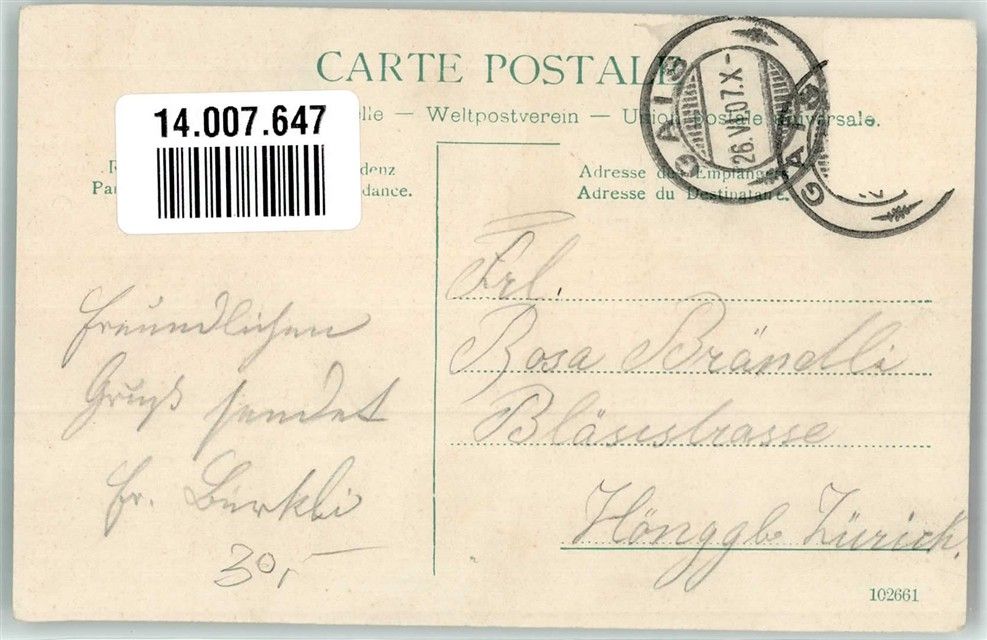 CARTE POSTALE
14.007.647
elle — Weltpostverein — Union Postale Universale.
denz
Pa
dance.
Adresse des Empfängers.
Adresse du Destinataire.
GAIS
26.VI.07.X-
GAIS
Frl.
Rosa Brändli
Bläsistrasse
Höngg b. Zürich.
Freundlichen
Gruß sendet
Fr. Bürkli
30,-
102661